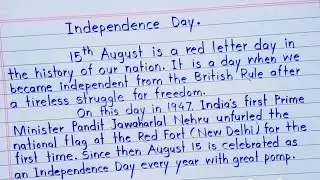 Independence Day.
15th August is a red letter day in
the history of our nation. It is a day when we
became independent from the British Rule after
a tireless struggle for freedom.
On this day in 1947. India's first Prime
Minister Pandit Jawaharlal Nehru unfurled the
national flag at the Red Fort (New Delhi) for the
first time. Since then August 15 is celebrated as
an Independence Day every year with great pomp.